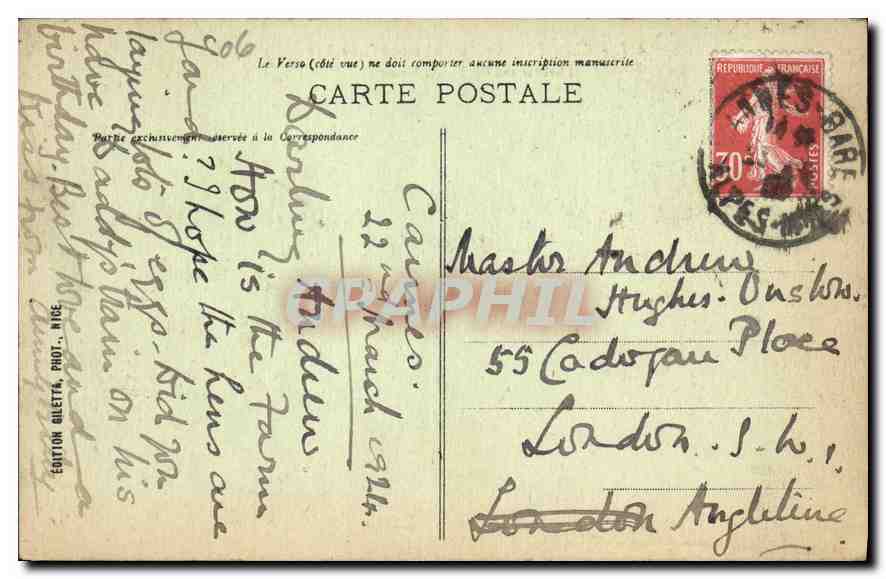 06
Le Verso (côté vue) ne doit comporter aucune inscription manuscrite
CARTE POSTALE
Partie exclusivement réservée à la Correspondance
RÉPUBLIQUE FRANÇAISE
30
POSTES
Cannes
22nd March 1924.
Darling Andrew
How is the Farm
Yard? I hope the hens are
laying lots of eggs. Did you
have Daddy's hair on his
birthday. Best love and a
kiss from
Master Andrew
Hughes-Onslow.
55 Cadogan Place
London. S.W.1
London Angleterre
EDITION GILETTA, PHOT., NICE
DELCAMPHIL